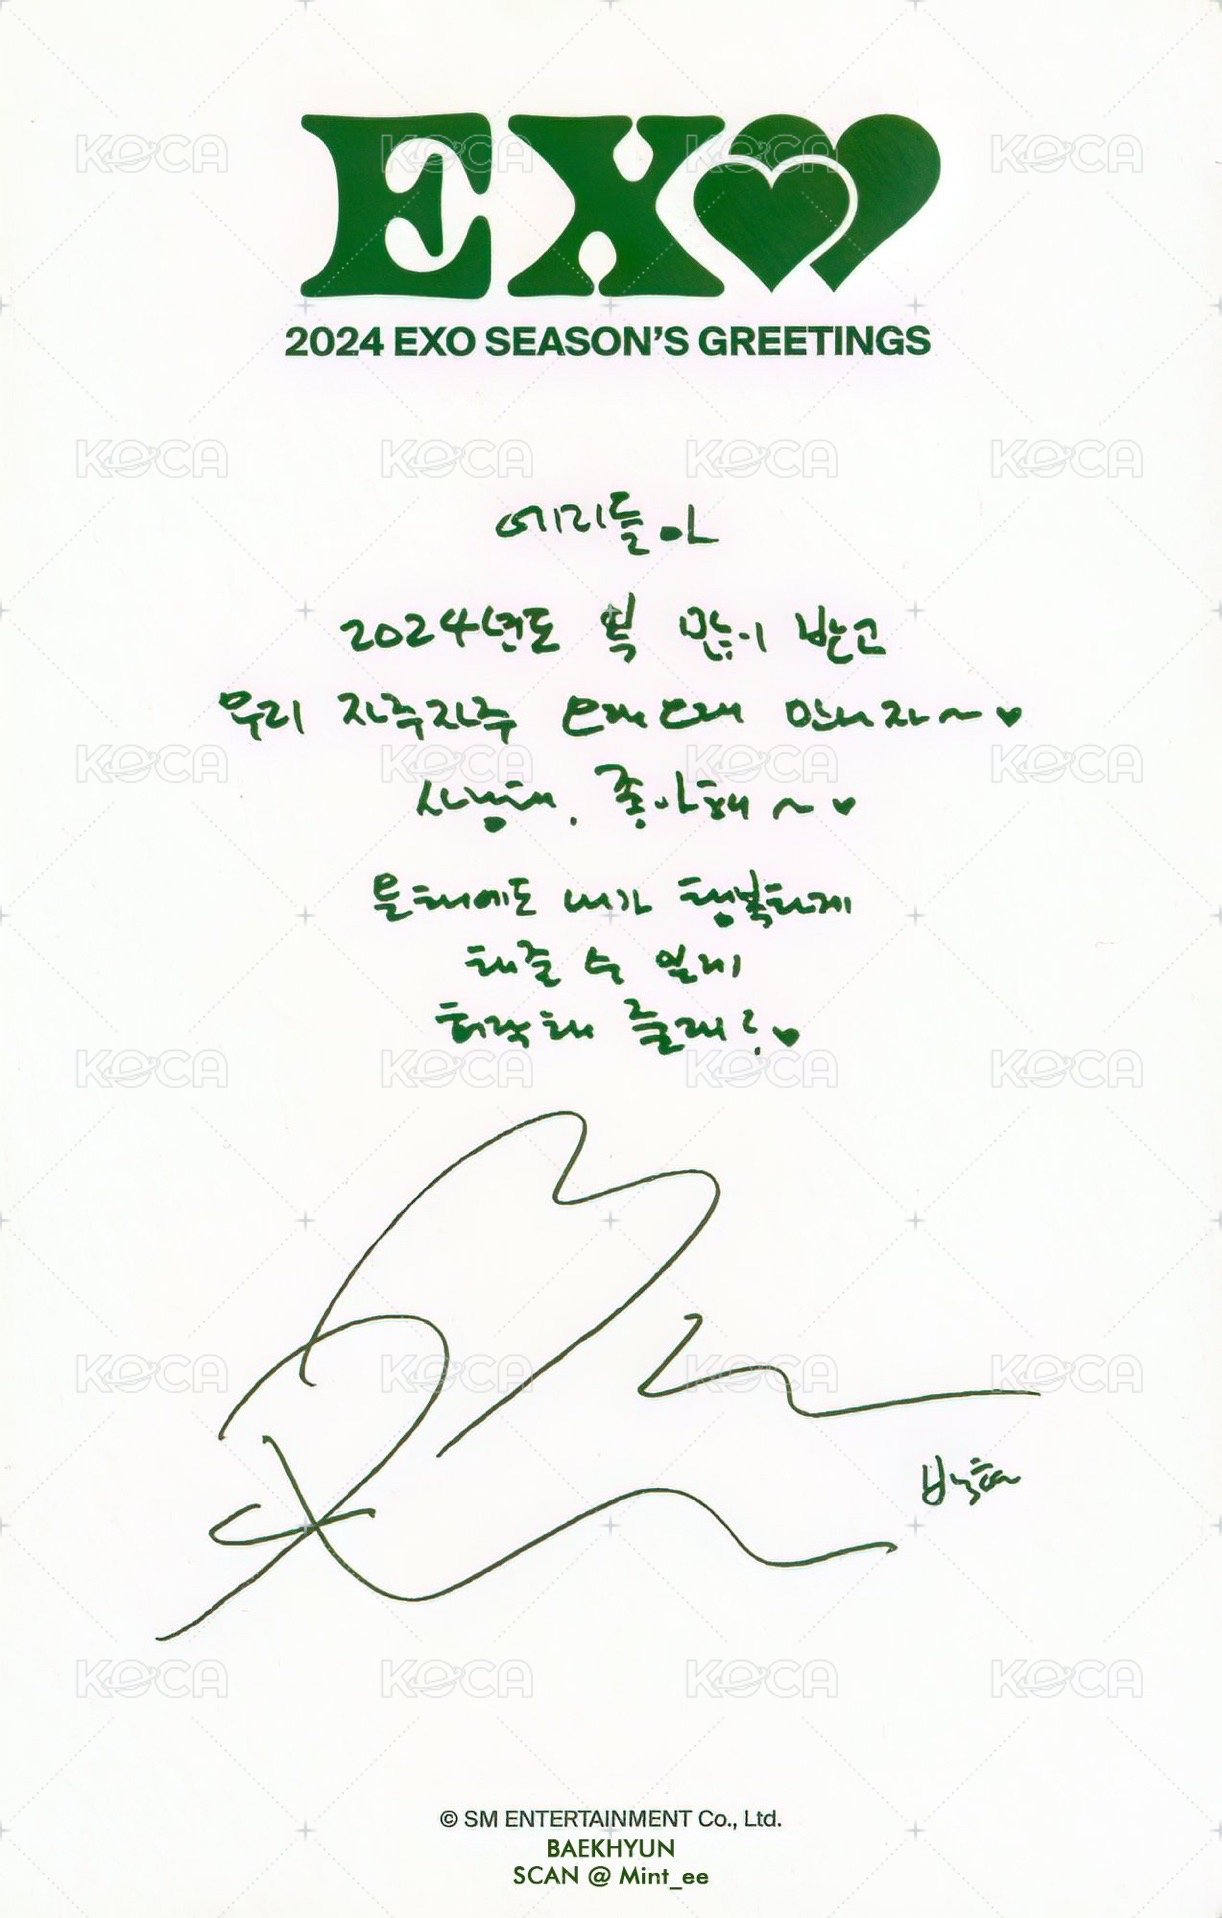 EXO
2024 EXO SEASON'S GREETINGS
에리들아
2024년도 복 많이 받고
우리 자주자주 오래오래 만나자~♥
사랑해. 좋아해~♥
올해에도 내가 행복하게
해줄 수 있게
허락해 줄래?♥
백현
© SM ENTERTAINMENT Co., Ltd.
BAEKHYUN
SCAN @ Mint_ee
KOCA